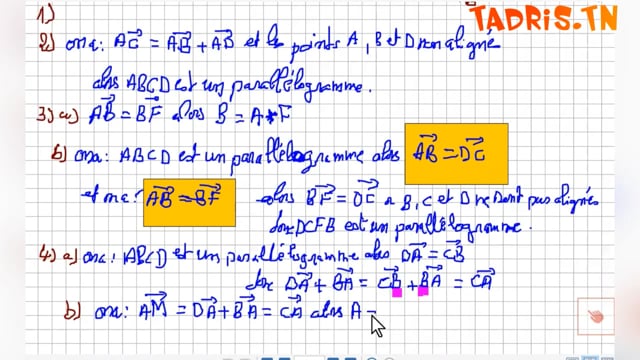 TADRIS.TN
1)
2) ona: AC⃗ = AB⃗ + AD⃗ et les points A, B et D non aligné
alors ABCD est un parallélogramme.
3) a) AB⃗ = BF⃗ alors B = A * F
b) ona: ABCD est un parallélogramme alors AB⃗ = DC⃗
et ona: AB⃗ = BF⃗ alors BF⃗ = DC⃗ B, C et D ne sont pas alignés
donc DCFB est un parallélogramme.
4) a) ona: ABCD est un parallélogramme alors DA⃗ = CB⃗
donc DA⃗ + BA⃗ = CB⃗ + BA⃗ = CA⃗
b) ona: AM⃗ = DA⃗ + BA⃗ = CA⃗ alors A =